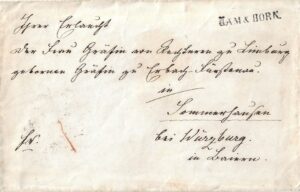 ZAM & BORK.
Ihrer Erlaucht
der Frau Gräfin von Rechteren zu Limburg
gebornen Gräfin zu Erbach-Fürstenau.
in
Sommerhausen
fr.
bei Würzburg.
in Baiern.